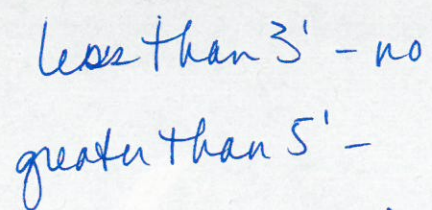 less than 3' - no
greater than 5' -